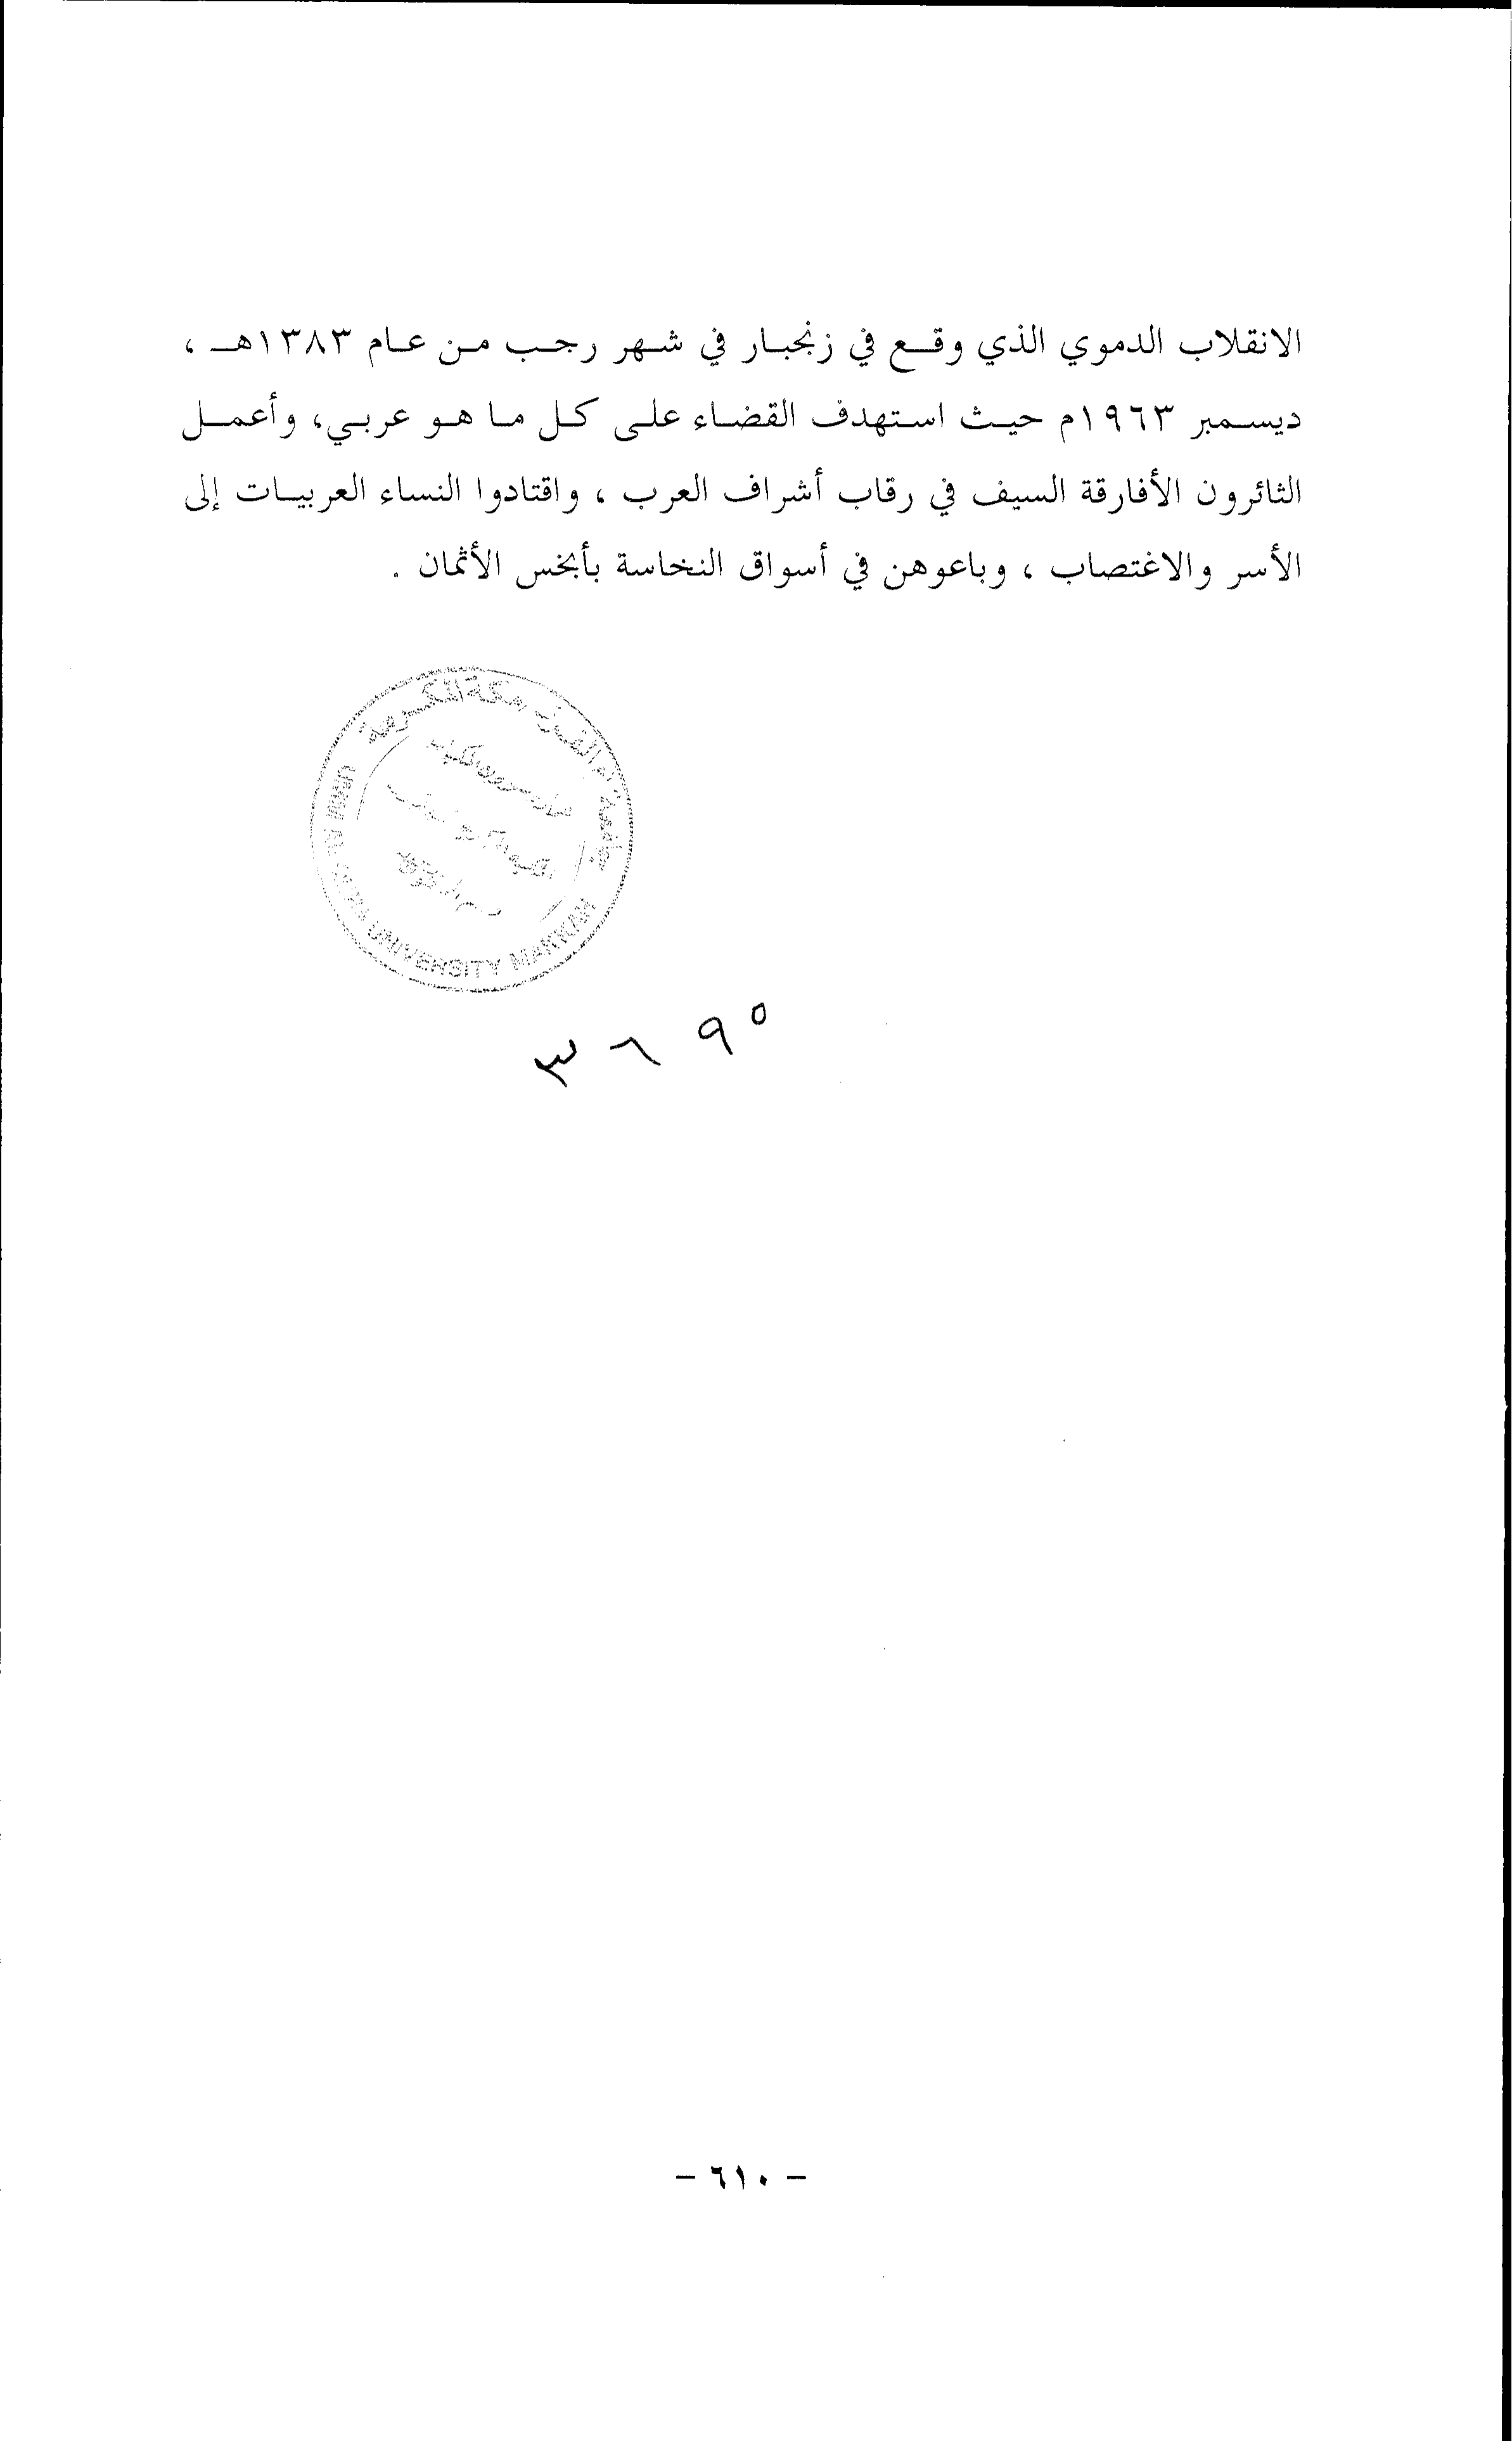 الانقلاب الدموي الذي وقع في زنجبار في شهر رجب من عام ١٣٨٣هـ ،
ديسمبر ١٩٦٣م حيث استهدف القضاء على كل ما هو عربي، وأعمل
الثائرون الأفارقة السيف في رقاب أشراف العرب ، واقتادوا النساء العربيات إلى
الأسر والاغتصاب ، وباعوهن في أسواق النخاسة بأبخس الأثمان .
جامعة أم القرى مكة المكرمة
UMM AL QURA UNIVERSITY MAKKAH
٣٦٩٥
- ٦١٠ -